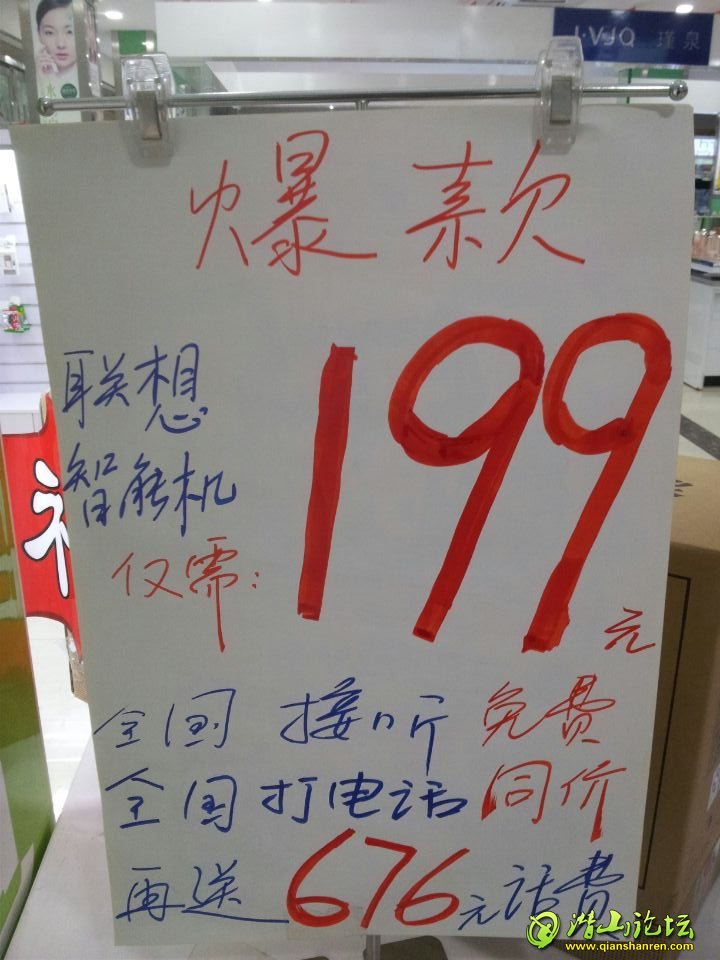 J·VJQ 瑾泉
水
爆款
联想
智能机
仅需:
199元
全国 接听 免费
全国打电话同价
再送676元话费
潜山论坛
www.qianshanren.com